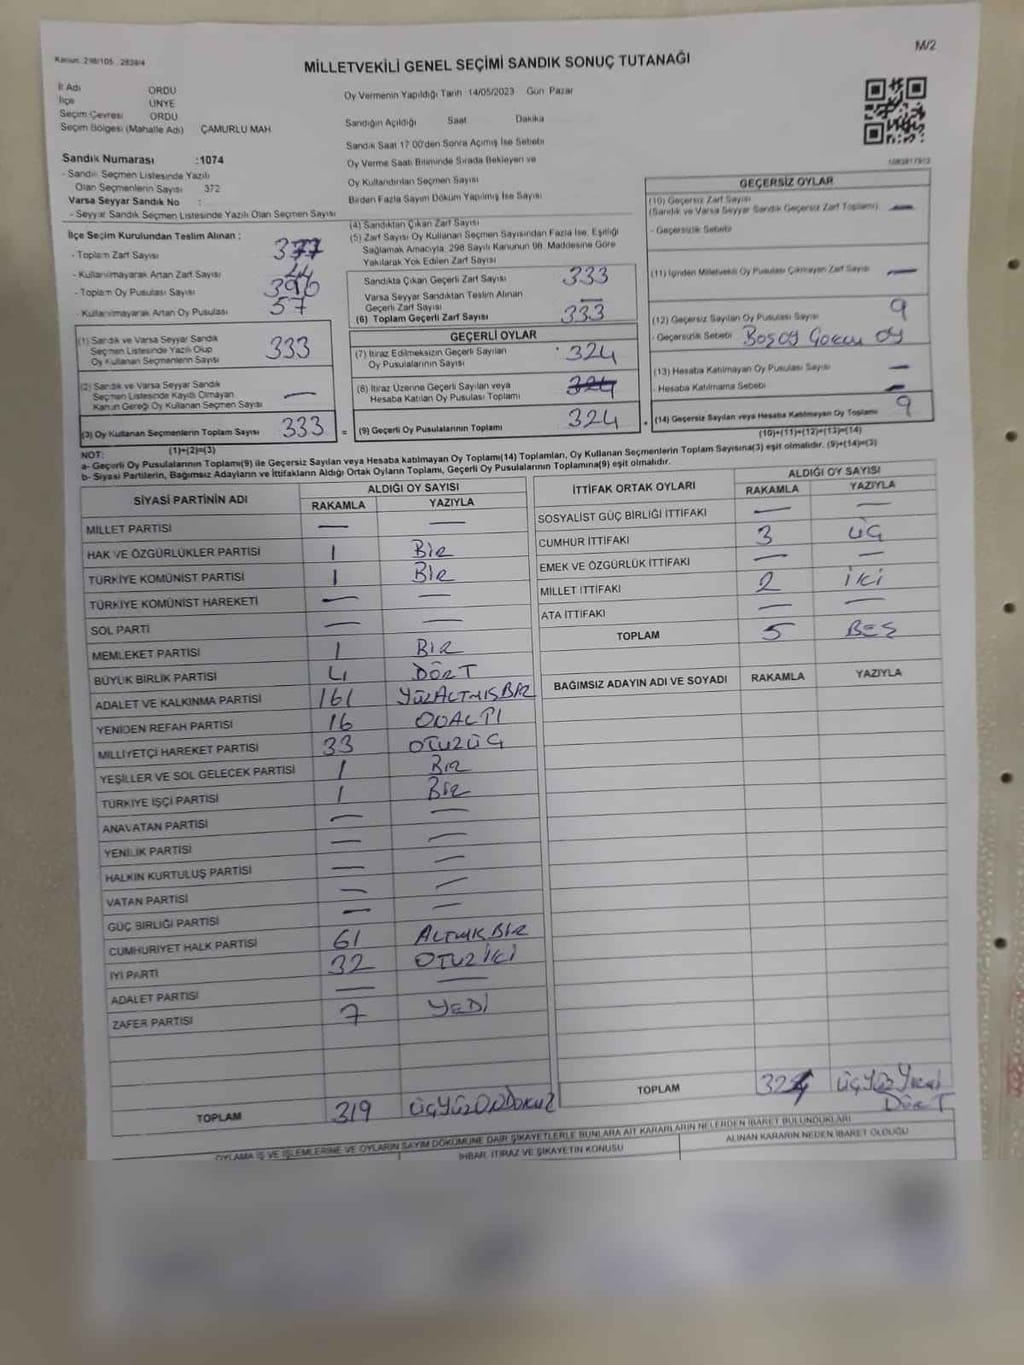 Kanun: 298/105 2839/4
M/2
MİLLETVEKİLİ GENEL SEÇİMİ SANDIK SONUÇ TUTANAĞI
İl Adı ORDU
İlçe ÜNYE
Seçim Çevresi ORDU
Seçim Bölgesi (Mahalle Adı) ÇAMURLU MAH
Sandık Numarası :1074
- Sandık Seçmen Listesinde Yazılı
Olan Seçmenlerin Sayısı 372
Varsa Seyyar Sandık No :
- Seyyar Sandık Seçmen Listesinde Yazılı Olan Seçmen Sayısı
Oy Vermenin Yapıldığı Tarih 14/05/2023 Gün Pazar
Sandığın Açıldığı Saat Dakika
Sandık Saat 17 00'den Sonra Açılmış İse Sebebi
Oy Verme Saati Bitiminde Sırada Bekleyen ve
Oy Kullandırılan Seçmen Sayısı
Birden Fazla Sayım Döküm Yapılmış İse Sayısı
İlçe Seçim Kurulundan Teslim Alınan :
- Toplam Zarf Sayısı 377
- Kullanılmayarak Artan Zarf Sayısı 44
- Toplam Oy Pusulası Sayısı 390
- Kullanılmayarak Artan Oy Pusulası 57
(1) Sandık ve Varsa Seyyar Sandık
Seçmen Listesinde Yazılı Olup
Oy Kullanan Seçmenlerin Sayısı 333
(2) Sandık ve Varsa Seyyar Sandık
Seçmen Listesinde Kayıtlı Olmayan
Kanun Gereği Oy Kullanan Seçmen Sayısı —
(3) Oy Kullanan Seçmenlerin Toplam Sayısı 333
(1)+(2)=(3)
(4) Sandıktan Çıkan Zarf Sayısı
(5) Zarf Sayısı Oy Kullanan Seçmen Sayısından Fazla İse, Eşitliği
Sağlamak Amacıyla, 298 Sayılı Kanunun 98. Maddesine Göre
Yakılarak Yok Edilen Zarf Sayısı
Sandıkta Çıkan Geçerli Zarf Sayısı 333
Varsa Seyyar Sandıktan Teslim Alınan
Geçerli Zarf Sayısı —
(6) Toplam Geçerli Zarf Sayısı 333
GEÇERLİ OYLAR
(7) İtiraz Edilmeksizin Geçerli Sayılan
Oy Pusulalarının Sayısı 324
(8) İtiraz Üzerine Geçerli Sayılan veya
Hesaba Katılan Oy Pusulası Toplamı 324
= (9) Geçerli Oy Pusulalarının Toplamı 324
GEÇERSİZ OYLAR
(10) Geçersiz Zarf Sayısı
(Sandık ve Varsa Seyyar Sandık Geçersiz Zarf Toplamı) —
- Geçersizlik Sebebi
(11) İçinden Milletvekili Oy Pusulası Çıkmayan Zarf Sayısı —
(12) Geçersiz Sayılan Oy Pusulası Sayısı 9
- Geçersizlik Sebebi
(13) Hesaba Katılmayan Oy Pusulası Sayısı —
- Hesaba Katılmama Sebebi —
+ (14) Geçersiz Sayılan veya Hesaba Katılmayan Oy Toplamı 9
(10)+(11)+(12)+(13)=(14)
NOT:
a- Geçerli Oy Pusulalarının Toplamı(9) ile Geçersiz Sayılan veya Hesaba katılmayan Oy Toplamı(14) Toplamları, Oy Kullanan Seçmenlerin Toplam Sayısına(3) eşit olmalıdır. (9)+(14)=(3)
b- Siyasi Partilerin, Bağımsız Adayların ve İttifakların Aldığı Ortak Oyların Toplamı, Geçerli Oy Pusulalarının Toplamına(9) eşit olmalıdır.
SİYASİ PARTİNİN ADI ALDIĞI OY SAYISI
RAKAMLA YAZIYLA
MİLLET PARTİSİ — —
HAK VE ÖZGÜRLÜKLER PARTİSİ 1 BİR
TÜRKİYE KOMÜNİST PARTİSİ 1 BİR
TÜRKİYE KOMÜNİST HAREKETİ — —
SOL PARTİ — —
MEMLEKET PARTİSİ 1 BİR
BÜYÜK BİRLİK PARTİSİ 4 DÖRT
ADALET VE KALKINMA PARTİSİ 161 YÜZALTMIŞBİR
YENİDEN REFAH PARTİSİ 16 ONALTI
MİLLİYETÇİ HAREKET PARTİSİ 33 OTUZÜÇ
YEŞİLLER VE SOL GELECEK PARTİSİ 1 BİR
TÜRKİYE İŞÇİ PARTİSİ 1 BİR
ANAVATAN PARTİSİ — —
YENİLİK PARTİSİ — —
HALKIN KURTULUŞ PARTİSİ — —
VATAN PARTİSİ — —
GÜÇ BİRLİĞİ PARTİSİ — —
CUMHURİYET HALK PARTİSİ 61 ALTMIŞ BİR
İYİ PARTİ 32 OTUZ İKİ
ADALET PARTİSİ — —
ZAFER PARTİSİ 7 YEDİ
TOPLAM 319 ÜÇYÜZONDOKUZ
İTTİFAK ORTAK OYLARI ALDIĞI OY SAYISI
RAKAMLA YAZIYLA
SOSYALİST GÜÇ BİRLİĞİ İTTİFAKI — —
CUMHUR İTTİFAKI 3 ÜÇ
EMEK VE ÖZGÜRLÜK İTTİFAKI — —
MİLLET İTTİFAKI 2 İKİ
ATA İTTİFAKI — —
TOPLAM 5 BEŞ
BAĞIMSIZ ADAYIN ADI VE SOYADI RAKAMLA YAZIYLA
TOPLAM 324 ÜÇYÜZ YİRMİ
DÖRT
OYLAMA İŞ VE İŞLEMLERİNE VE OYLARIN SAYIM DÖKÜMÜNE DAİR ŞİKAYETLERLE BUNLARA AİT KARARLARIN NELERDEN İBARET BULUNDUKLARI
İHBAR, İTİRAZ VE ŞİKAYETİN KONUSU
ALINAN KARARIN NEDEN İBARET OLDUĞU